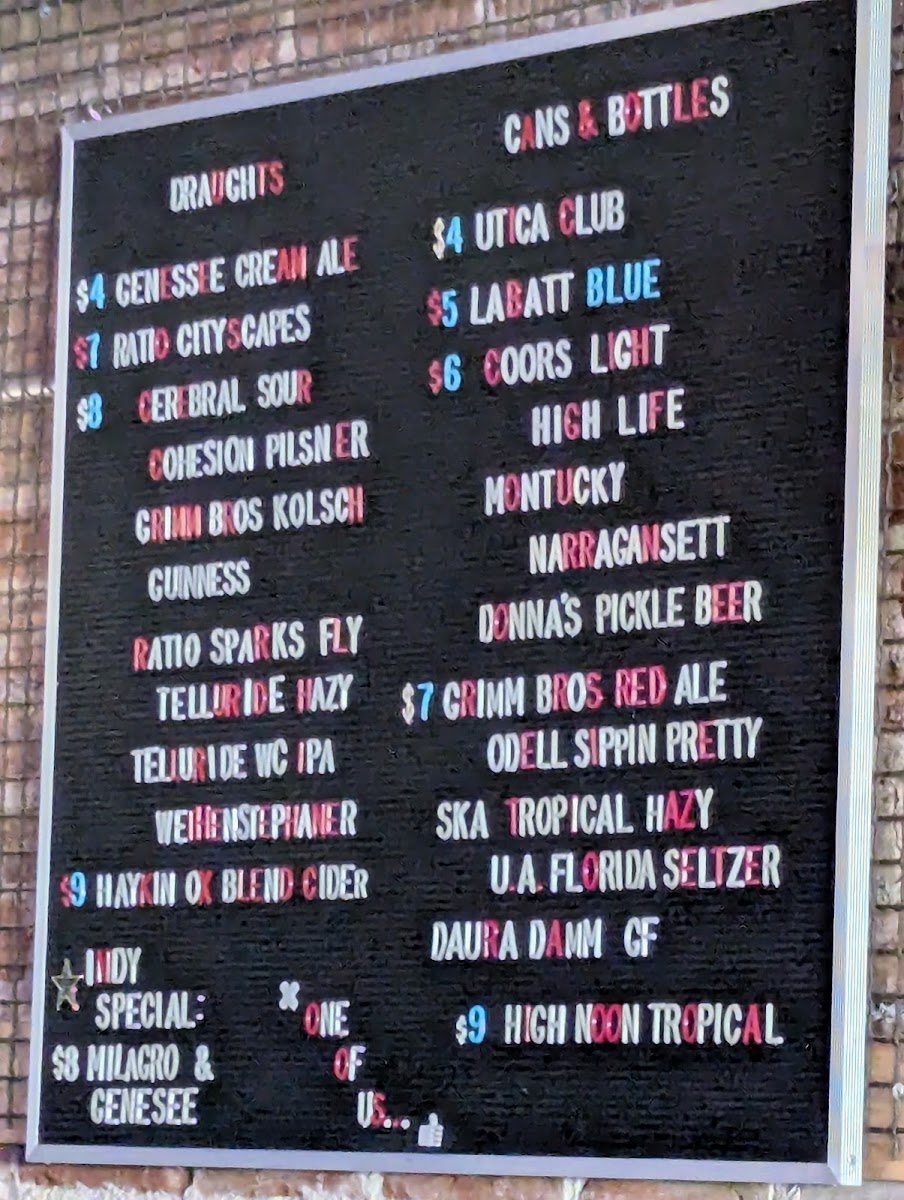 DRAUGHTS
$4 GENESSEE CREAM ALE
$7 RATIO CITYSCAPES
$8 CEREBRAL SOUR
COHESION PILSNER
GRIMM BROS KOLSCH
GUINNESS
RATIO SPARKS FLY
TELLURIDE HAZY
TELLURIDE WC IPA
WEIHENSTEPHANER
$9 HAYKIN OX BLEND CIDER
INDY
SPECIAL:
$8 MILAGRO &
GENESEE
ONE
OF
US...
CANS & BOTTLES
$4 UTICA CLUB
$5 LABATT BLUE
$6 COORS LIGHT
HIGH LIFE
MONTUCKY
NARRAGANSETT
DONNA'S PICKLE BEER
$7 GRIMM BROS RED ALE
ODELL SIPPIN PRETTY
SKA TROPICAL HAZY
U.A. FLORIDA SELTZER
DAURA DAMM GF
$9 HIGH NOON TROPICAL